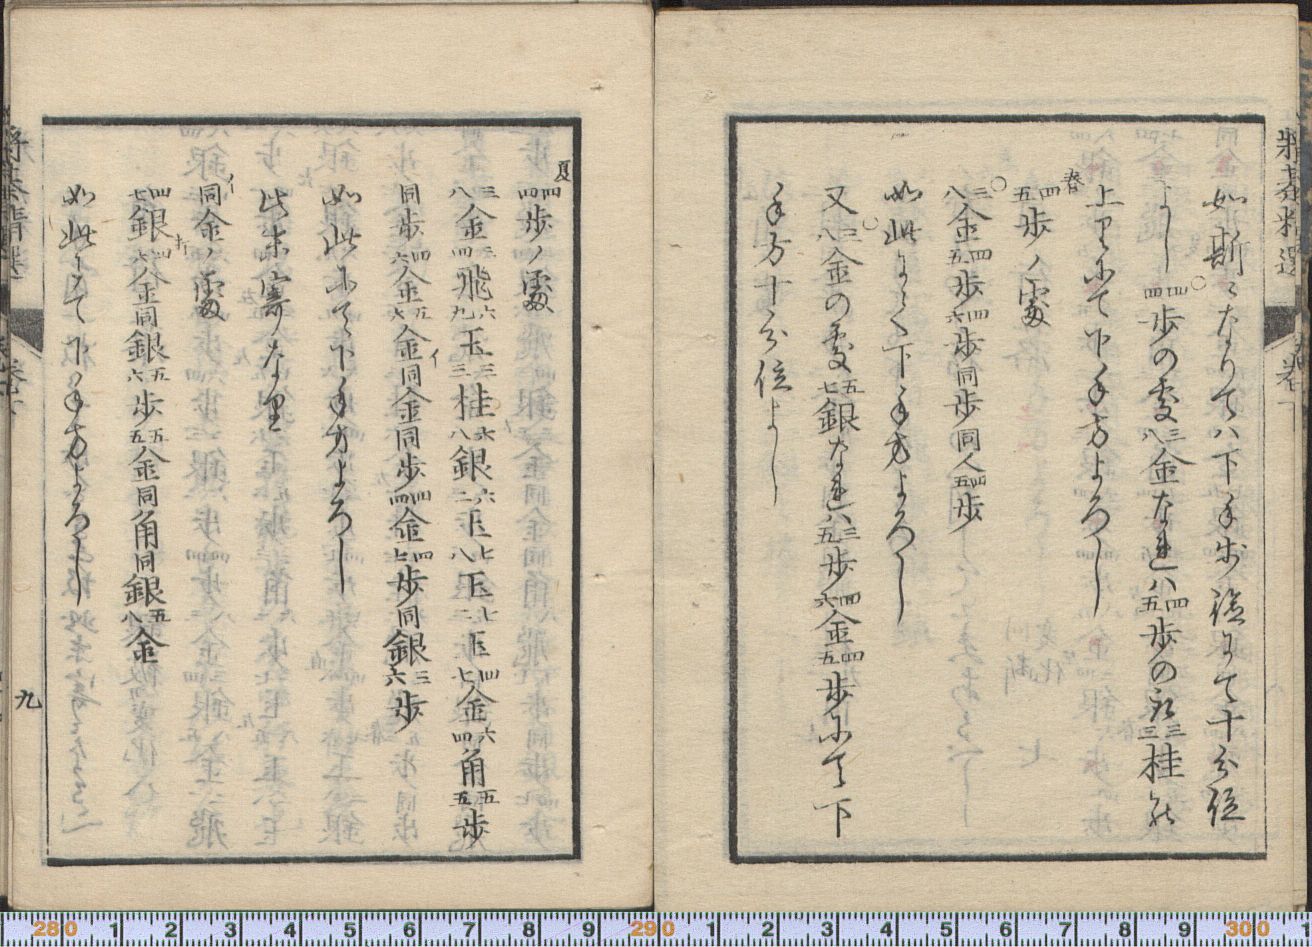 如斯になりてハ下手歩詰にて十分位
よし四四歩の処三八金なれハ四五歩の所三三桂
上りにて下手方よろし
春
四五歩ノ處
三八金四五歩四六歩同歩同人四五歩
如此にて下手方よろし
又三八金の処五七銀なれハ三五歩四六金四五歩にて下
手方十分位よし
将棊精選
夏
四四歩ノ處
三八金三四飛六九玉三三桂六八銀六二玉七八玉七二玉四七金六四角五五歩
同歩四六金五六金同金同歩四四金四七歩同銀三六歩
如此にて下手方よろし
此末寄なり
同金ノ處
四七銀四六金同銀五六歩五五金同角同銀五八金
如此にて下手方よろし
九